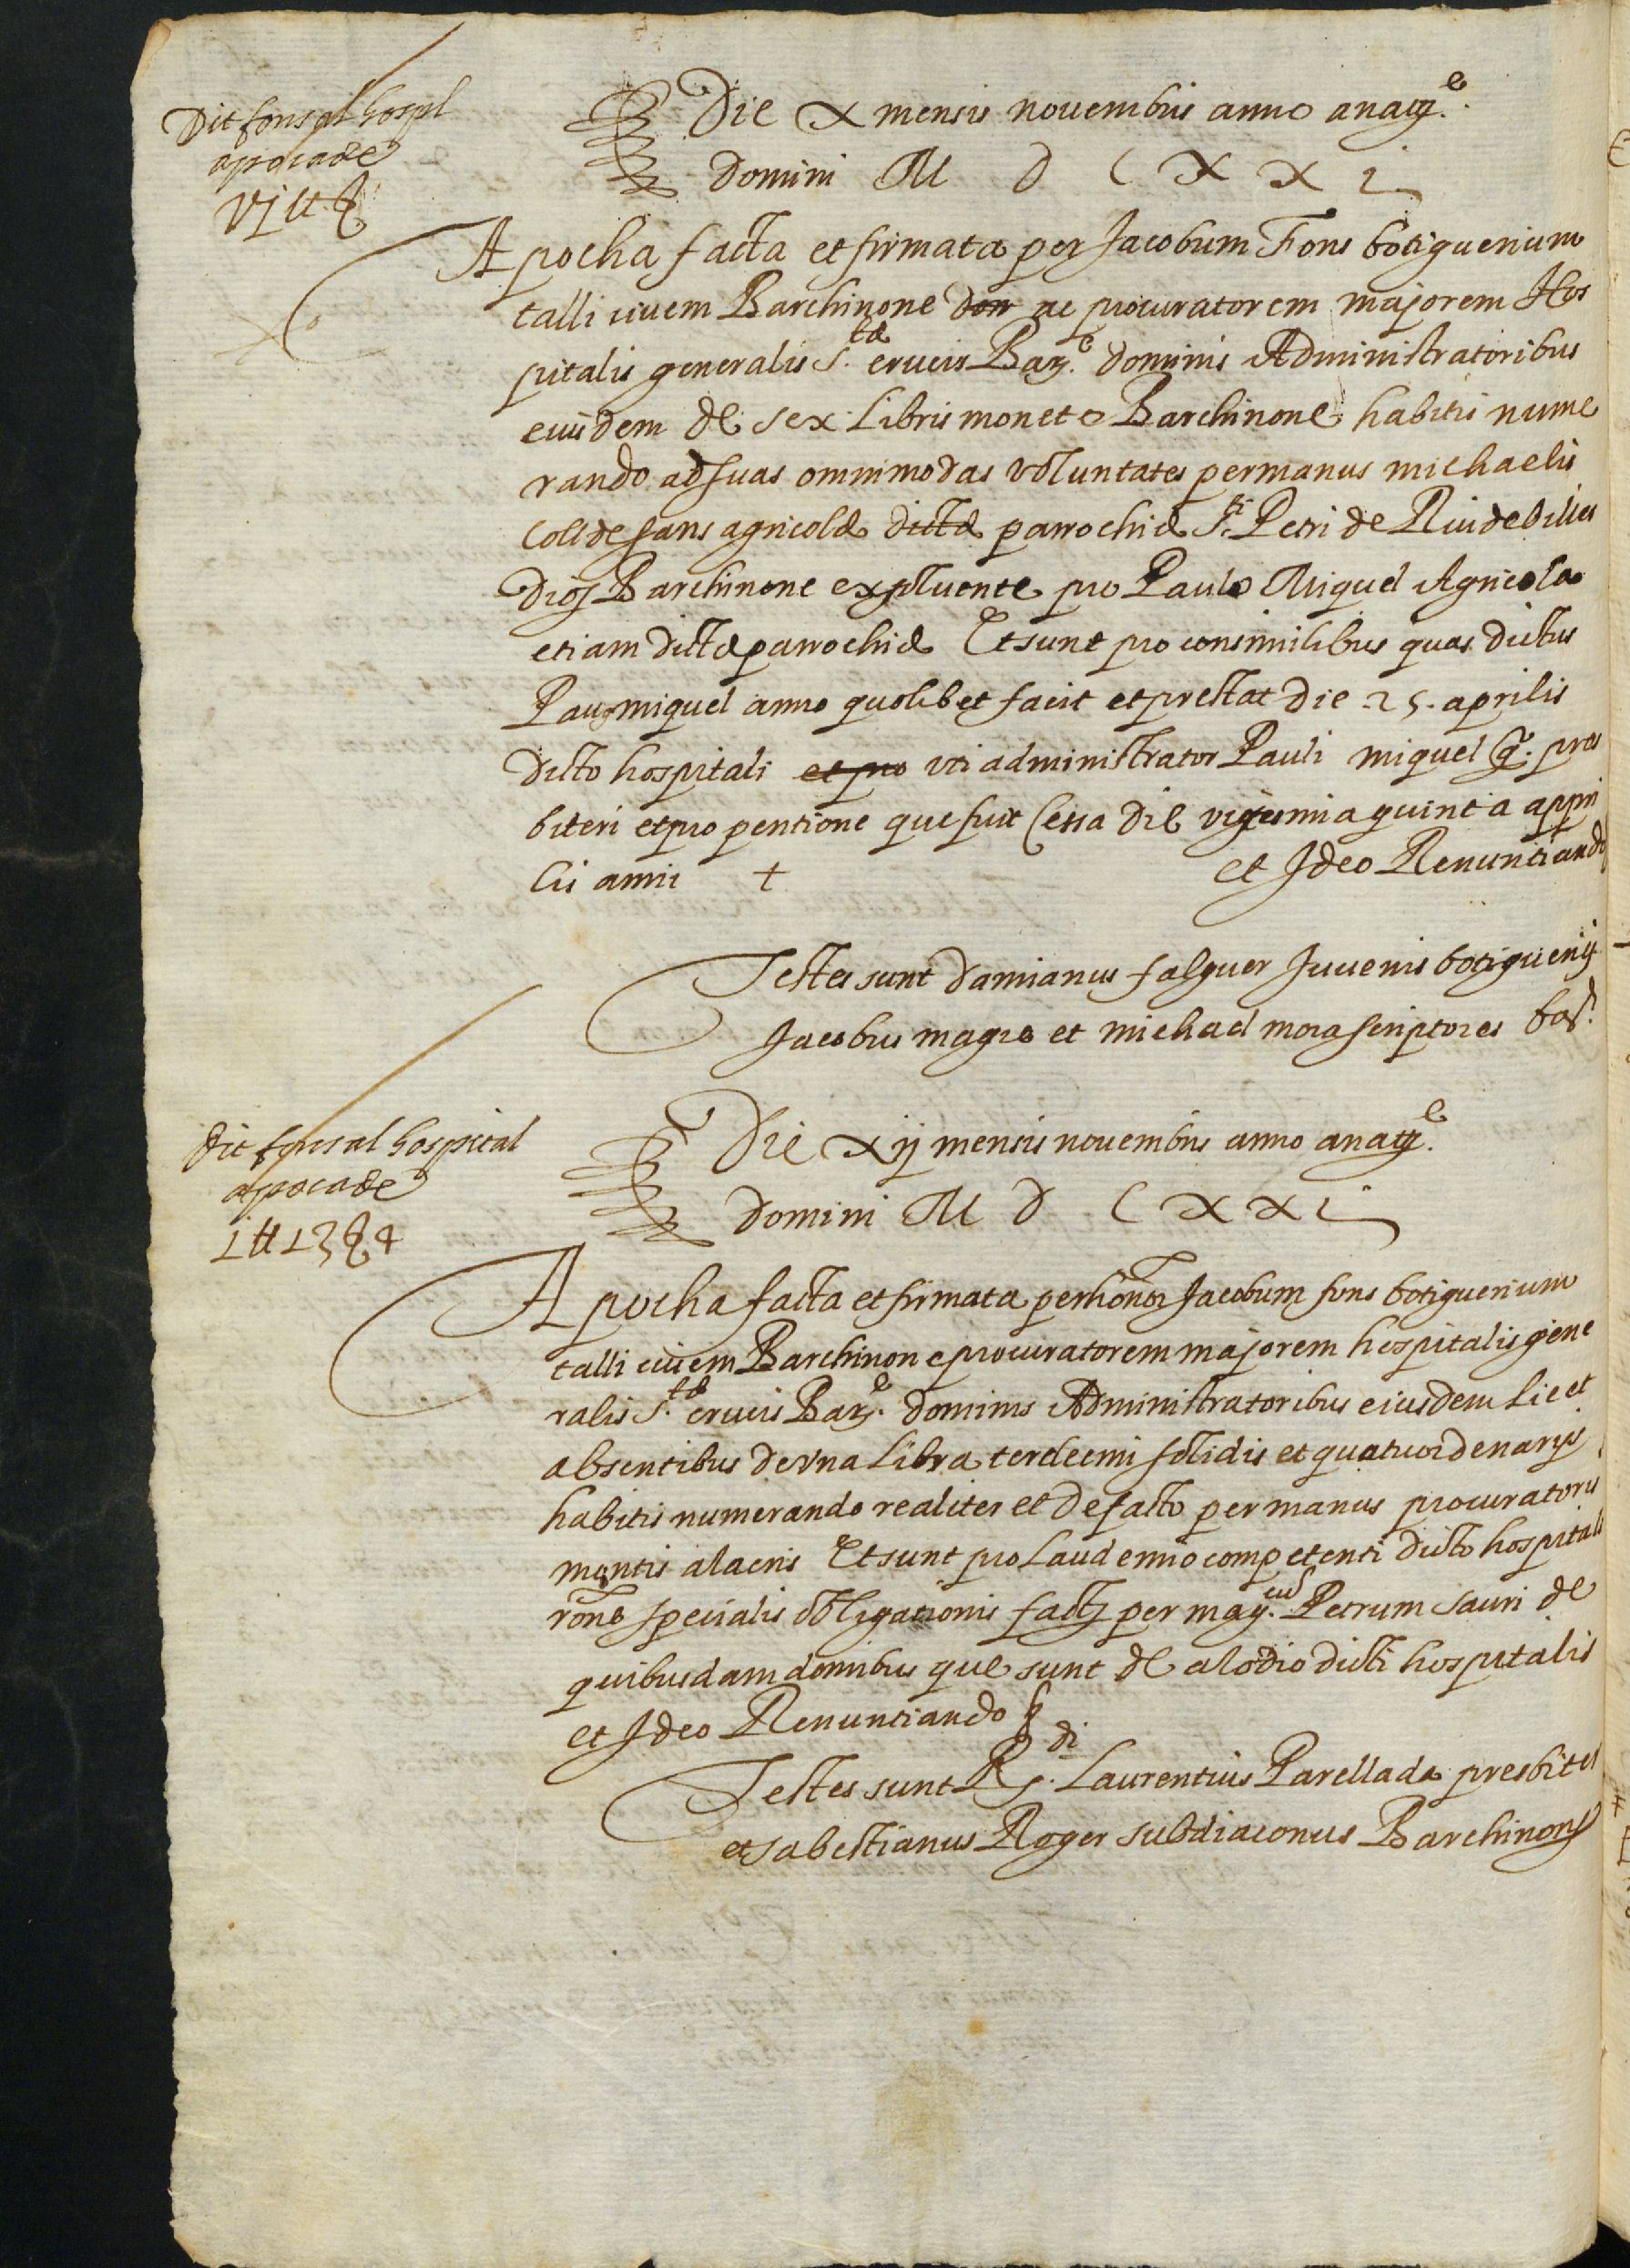 Dit fons al hospl
apoca de
vj ɫɫ ẞ
Die X mensis nouembris anno a natte.
Domini M D C X X i
Apocha facta et firmata per Jacobum Fons botiguerium
talli ciuem Barchinone ac procuratorem majorem Hos
pitalis generalis S.tæ crucis Barne. dominis Administratoribus
eiusdem de sex Libris monete Barchinone habitis nume
rando ad suas omnimodas voluntates per manus michaelis
Coll de fans agricolæ dictæ parrochiæ S.ti Petri de Riudebilles
Dios Barchinone exsoluente pro Paulo Miquel Agricola
etiam dictæ parrochiæ Et sunt pro consimilibus quas dictus
Paus miquel anno quolibet facit et prestat die 25. aprilis
dicto hospitali et pro vti administrator Pauli miquel q. pres
biteri et pro pentione que fuit Cessa die vigesimia quinta appri
lis anni + et Ideo Renuntiando
Testes sunt Damianus falguer Juuenis botiguerij
Jacobus magre et michael mora scriptores bar.
Dit fons al hospital
apoca de
1 ɫɫ 13 ẞ 4
Die Xij mensis nouembris anno a natte.
Domini M D C X X i
Apocha facta et firmata per honor Jacobum fons botiguerium
talli ciuem Barchinone procuratorem majorem hospitalis gene
ralis S.tæ crucis Barne. dominis Administratoribus eiusdem Licet
absentibus de vna Libra terdecim solidis et quatuor denarijs
habitis numerando realiter et de facto per manus procuratoris
montis alacris Et sunt pro Laudemio competenti dicto hospitali
rone specialis obligationis facte per mag.cum Petrum sauri de
quibusdam domibus que sunt de alodio dicti hospitalis
et Ideo Renuntiando
Testes sunt R.di Laurentius Parellada presbiter
et sabestianus Roger subdiaconus Barchinone